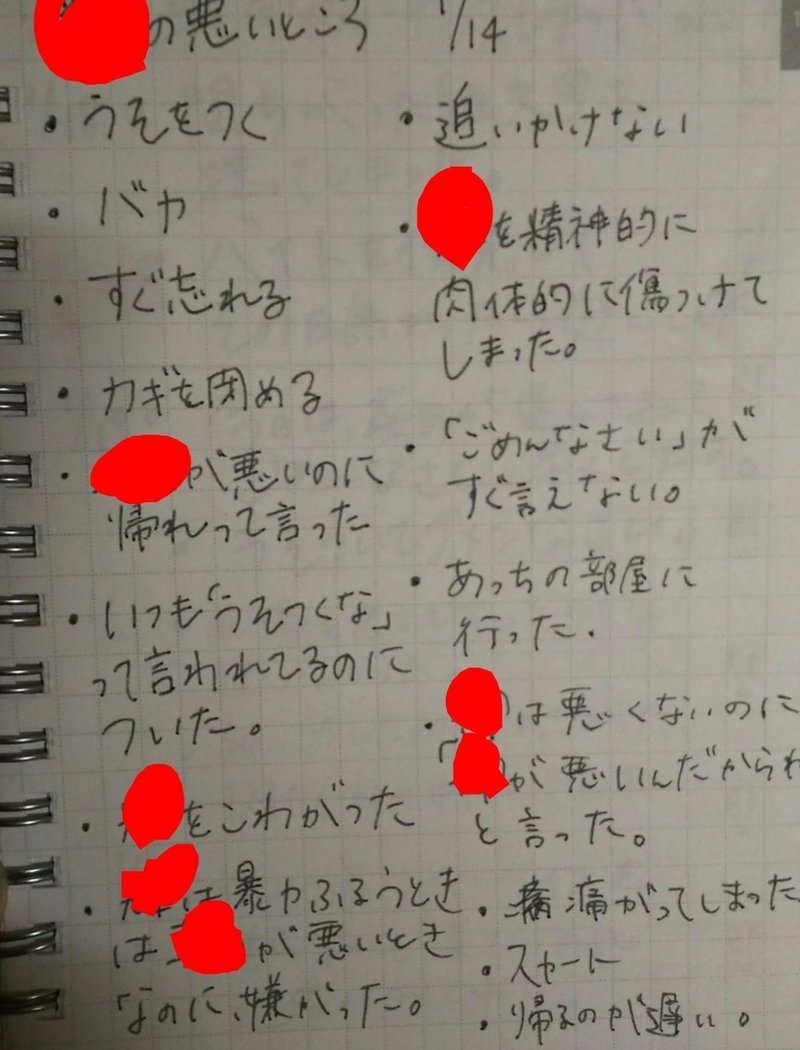 の悪いところ 1/14
・うそをつく
・バカ
・すぐ忘れる
・カギを閉める
・が悪いのに
帰れって言った
・いつも「うそつくな」
って言われてるのに
ついた。
・をこわがった
・は暴力ふるうとき
はが悪いとき
なのに、嫌がった。
・追いかけない
・を精神的に
肉体的に傷つけて
しまった。
・「ごめんなさい」が
すぐ言えない。
・あっちの部屋に
行った.
・は悪くないのに
「が悪いんだから
と言った。
・痛がってしまった
・スカート
・帰るのが遅い。